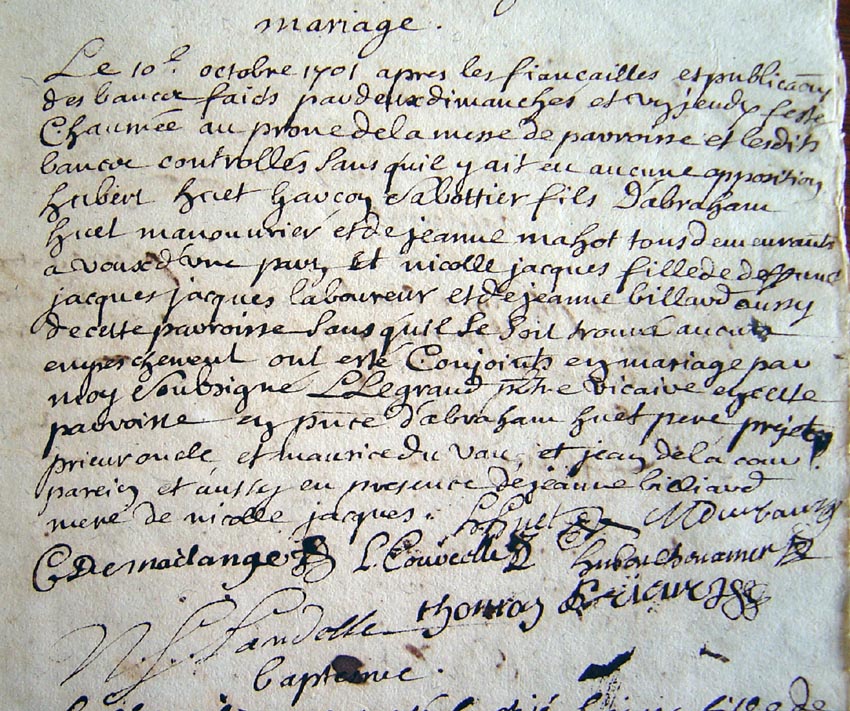 mariage.
Le 10e octobre 1701 apres les fiancailles et publicaōn
des bancx faicts par deux dimanches et un jeudy feste
Chaumée au prone de la messe de parroisse et lesdits
bancx controllés sans quil y ait eu aucune opposition
hubert huet garcon Sabottier fils D'abraham
huet manouvrier et de jeanne mahot tous demeurants
a voux et nicolle jacques fille de deffunct
jacques jacques laboureur et de jeanne billard aussy
de cette parroisse sans quil se soit trouvé aucun
empeschement ont esté Conjoints en mariage par
moy Soubsigné L Legrand pbtre vicaire en cette
parroisse en pñce d'abraham huet pere
prieur oncle et maurice du vau et jean de la cour
parein et aussy en presence de jeanne billiard
mere de nicolle jacques.
huet
C Demaelange L. Couvrelle
thomas Prieur
baptesme.
fille de